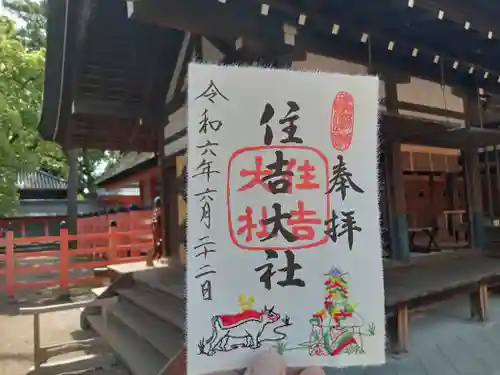 奉拝
住吉大社
住吉大社
令和六年六月二十二日